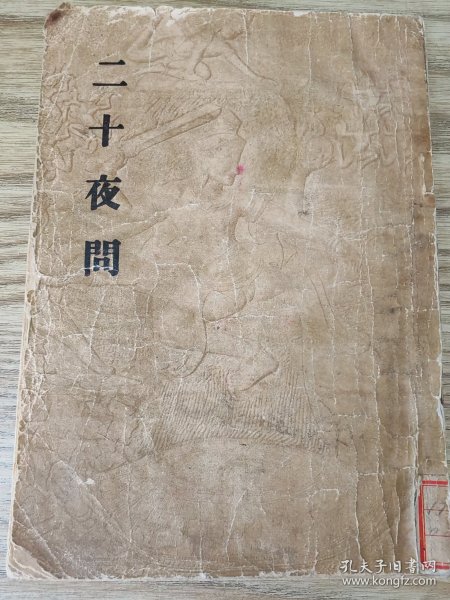 二十夜問
孔夫子旧书网
www.kongfz.com